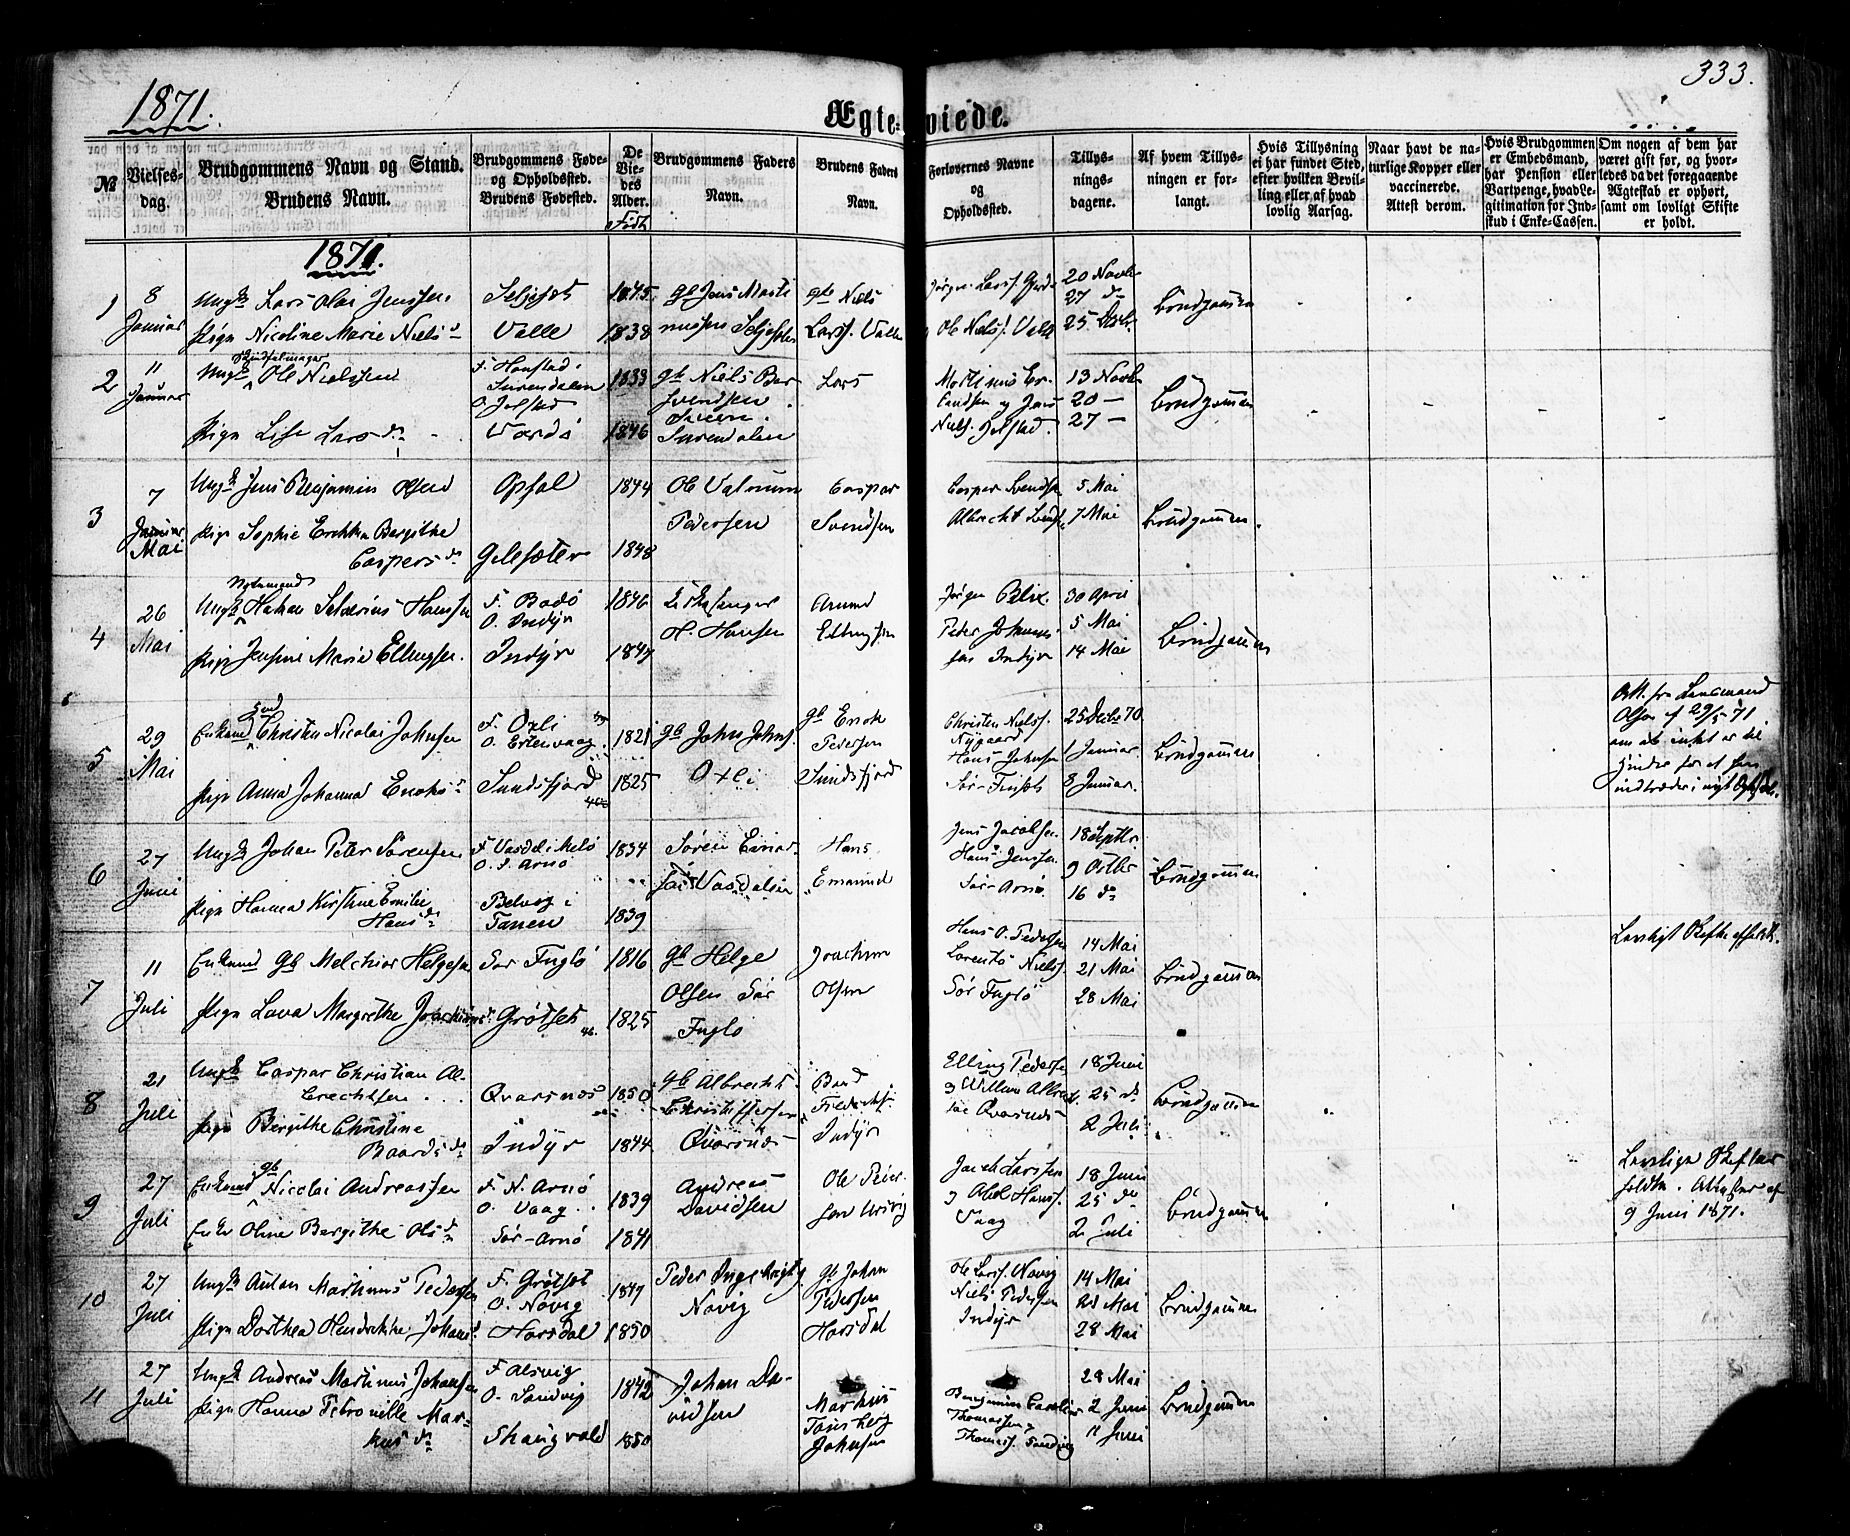 1871.
333.
Ægte-viede.
№
Vielses-
dag.
Brudgommens Navn og Stand.
Brudens Navn.
Brudgommens Føde-
og Opholdssted.
Brudens Fødested.
De
Vie-
des
Alder.
Født
Brudgommens Faders
Navn.
Brudens Faders
Navn.
Forlovernes Navne
og
Opholdssted.
Tillys-
nings-
dagene.
Af hvem Tillys-
ningen er for-
langt.
Hvis Tillysning
ei har fundet Sted,
efter hvilken Bevil-
ling eller af hvad
lovlig Aarsag.
Naar havt de na-
turlige Kopper eller
vaccinerede.
Attest derom.
Hvis Brudgommen
er Embedsmand,
har Pension eller
Vartpenge, hvad Le-
gitimation for Ind-
skud i Enke-Cassen.
Om nogen af dem har
været gift før, og hvor-
ledes da det foregaaende
Ægteskab er ophørt,
samt om lovligt Skifte
er holdt.
1871.
1
8
Januar
Ungk Lars Olai Jenssen
Pige Nicoline Marie Niels d
Seljeset
Valle
1845
1838
gb Jens Marti
nussen Seljeset
gb Niels
Larss. Valle
Ole Nielss. Valle
20 Novbr
27 do
25 Decbr
Brudgommen
2
11
Januar
Ungk Ole Nielssen
Pige Lise Lars dr
F. Hanstad i
Surendalen
O. Jelstad
Værdø
1833
1846
gb Niels
Svendsen
Surendalen
Lars
13 Novbr
20 —
27 —
Brudgommen
3
7
Mai
Ungk Jens Benjamin Olsen
Pige Sophie Bergithe
Caspers dr
Opsal
Gilesæter
1844
1848
Ole Valnum
Pedersen
Caspar
Svendsen
Caspar Svendsen
Albrecht
5 Mai
7 Mai
Brudgommen.
4
26
Mai
Ungk Hakan Hanssen
Pige Jensine Marie Ellingsen.
F. Bodø
O. Indyr
Indyr
1846
1847
H. Hansen
Amund
Ellingsen
Jørgen Blix.
Peter Johannes
sen Indyr
30 April
5 Mai
14 Mai
Brudgommen
5
29
Mai
Enkemd Christen Nicolai Johnsen
Pige Anna Johanna Erichs dr
F. Oxli
O. Ertenvaag
Sundsfjord
1821
1825
gb John Johns.
Oxli
gb Erich
Pedersen
Sundsfjord
Christen Nielss.
Nygaard
Hans Johnsen
Sør-
25 Decbr 70
1 Januar
8 Januar.
Brudgommen
Att. fra Lensmand
Olsen af 29/5 71
om at intet er til
Hinder for at han
indtræder i nyt
6
27
Juni
Ungk Johan Peter Sørensen
Pige Hanna Kirstine Emilie
Hans dr
F Vasdal i Melø
O. S. Arnø
Belvig i
Tranen
1834
1839
Søren Einar
sen Vasdalen
Hans
Emanuel
Jens Jacobsen
Hans Jenssen
Sør-Arnø
18 Septbr.
9 Octbr
16 do
Brudgommen
7
11
Juli
Enkemd gb Melchior Helgesen
Pige Lava Margrethe Joachims
Sør Fuglø
Grøtset
1816
1825
gb Helge
Olsen Sør
Fuglø
Joachim
Olsen
Hans O. Pedersen
Lorents Nielss
Sør Fuglø
14 Mai
21 Mai
28 Mai
Brudgommen
Lovligt Skifte afholdt.
8
21
Juli
Ungk Caspar Christian Al-
brechtsen
Pige Bergithe Christine
Baards dr
Qvarsnæs
Indyr
1850
1844
gb Albrecht
Christoffersen
Qvarsnæs
Baard
Indyr
Elling Pedersen
Qvarsnæs
18 Juni
25 do
2 Juli
Brudgommen
9
27
Juli
Enkemd gb Nicolai Andreassen
Enke Oline Bergithe Ols dr
F. N. Arnø
O. Vaag
Sør-Arnø
1839
1841
Andreas
Davidsen
Ole Peter
sen
Jacob Larssen
Vaag
18 Juni
25 do
2 Juli
Brudgommen
Lovlige Skifter
holdte. Attester af
9 Juni 1871.
10
27
Juli
Ungk Anton Martinus Pedersen
Pige Dorthea Hendrikke Johans
F. Grøtset
O. Novig
Horsdal
1849
1850
Peder
Novig
gb Johan
Pedersen
Horsdal
Ole Larss. Novig
Niels Pedersen
Indyr
14 Mai
21 Mai
28 Mai
Brudgommen
11
27
Juli
Ungk Andreas Martinus Johansen
Pige Hanna Petronille Mar-
kus dr
F Alsvig
O. Sandvig
Skaugvold
1842
1850
Johan Da-
vidsen
Tønsberg
Johnsen
Thomassen
Thomass. Sandvig
28 Mai
2 Juni
11 Juni
Brudgommen